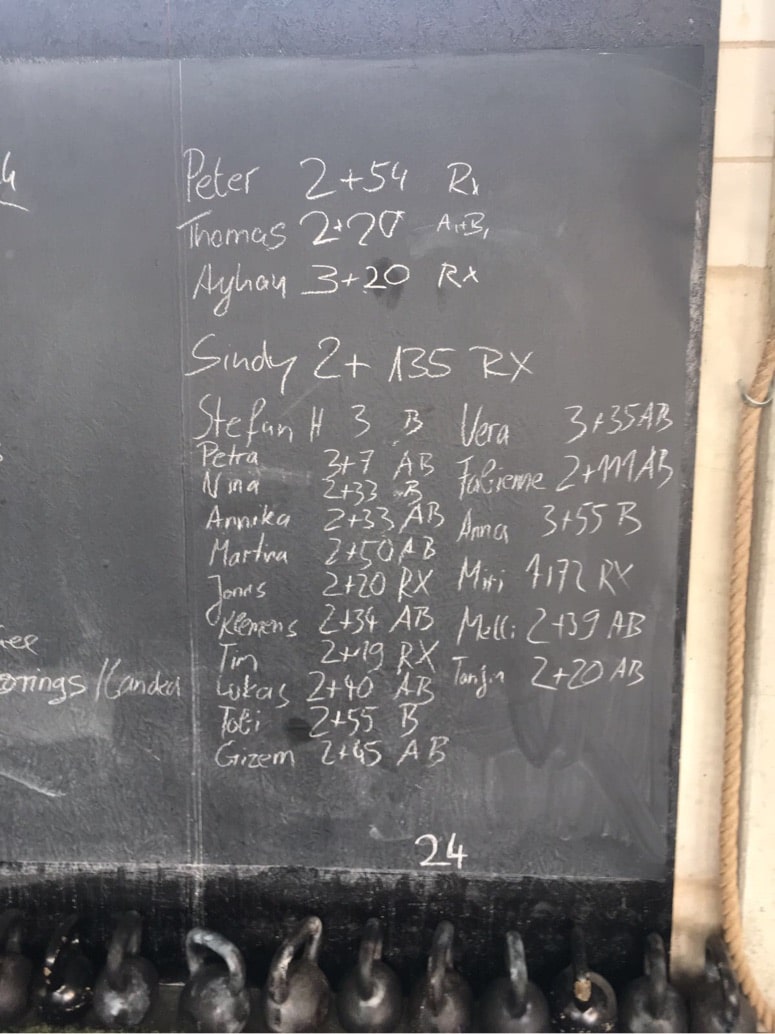 Peter 2+54 Rx
Thomas 2+20 A+B,
Ayhan 3+20 RX
Sindy 2+ 135 RX
Stefan H 3 B
Petra 3+7 AB
Nina 2+33 B
Annika 2+33 AB
Martina 2+50 AB
Jonas 2+20 RX
Klemens 2+34 AB
Tim 2+19 RX
Lukas 2+40 AB
Tobi 2+55 B
Gizem 2+45 AB
Vera 3+35 AB
Fabienne 2+111 AB
Anna 3+55 B
Miri 1+72 RX
Melli 2+39 AB
Tanja 2+20 AB
24